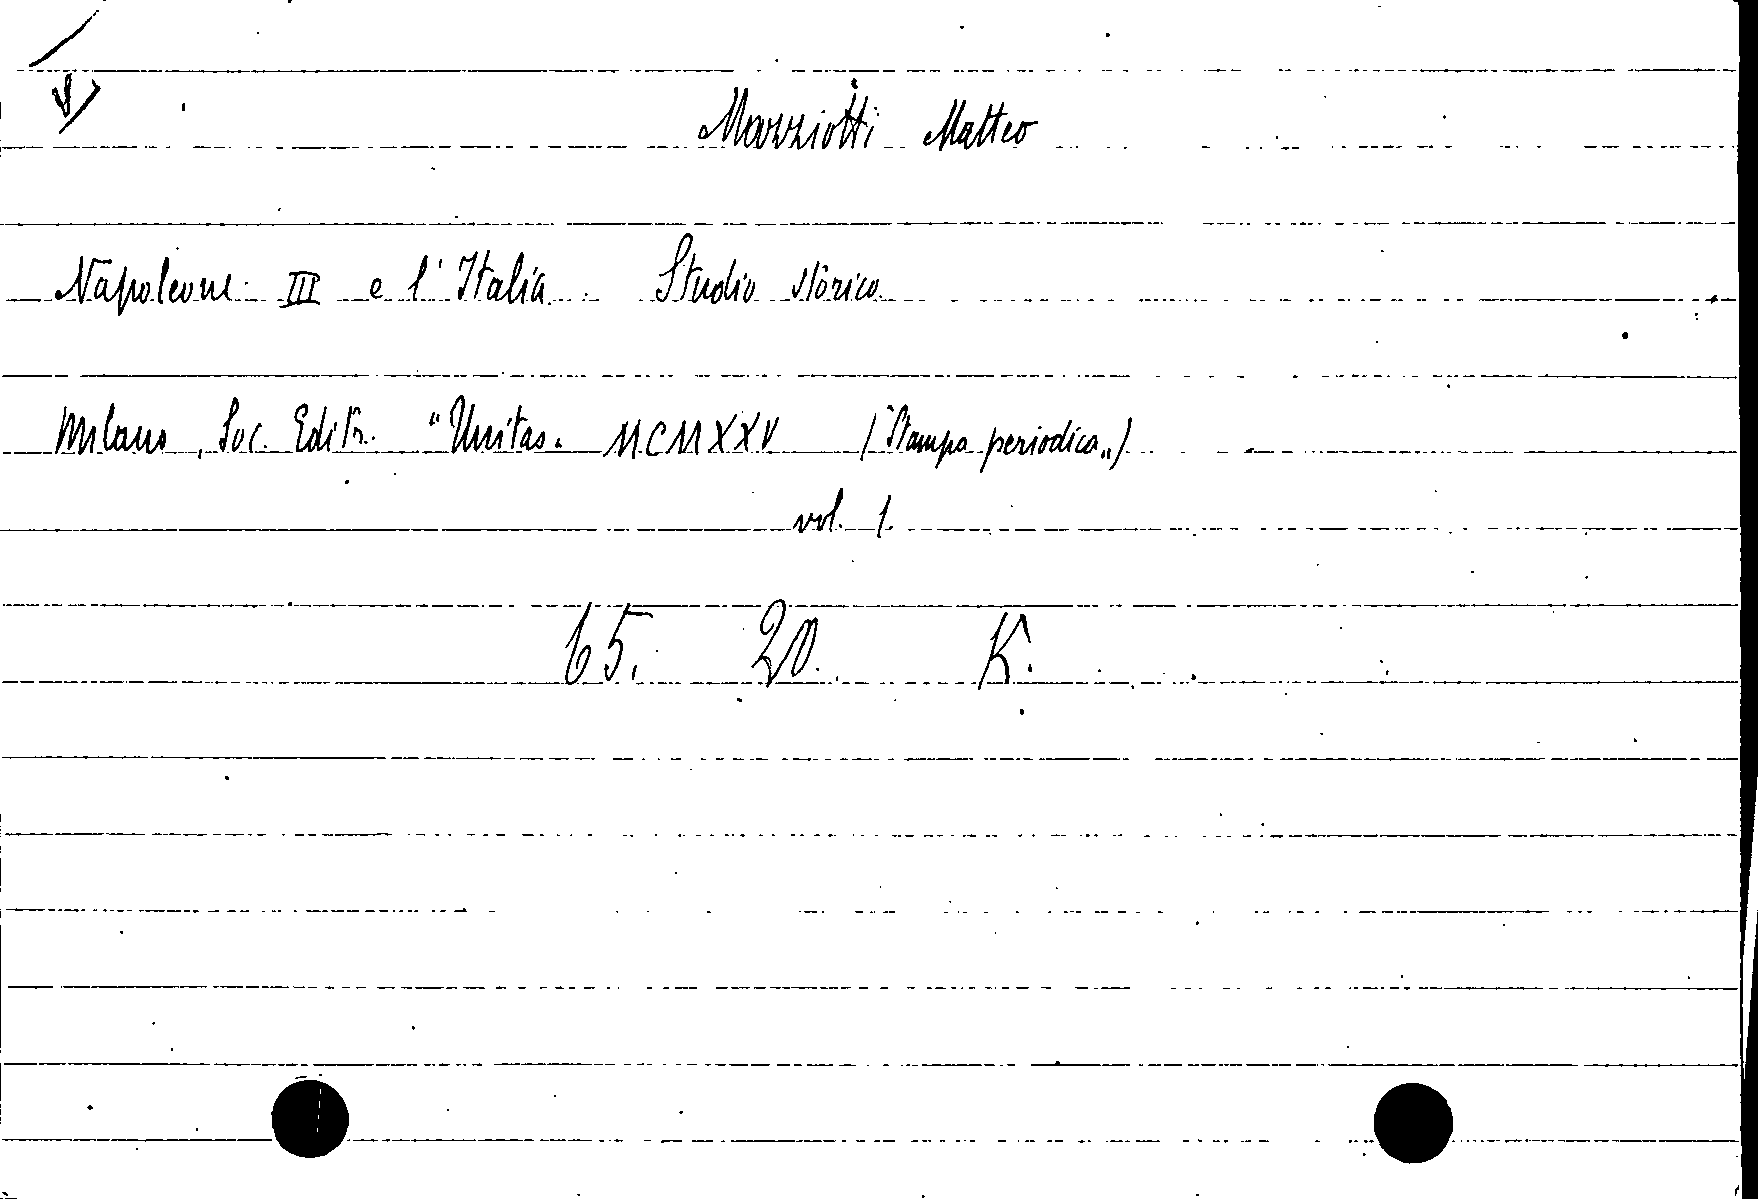 Mazziotti Matteo
Napoleone III e l'Italia. Studio storico
Milano, Soc. Editr. "Unitas. MCMXXV (Stampa periodica„)
vol. 1.
65. 20. K.